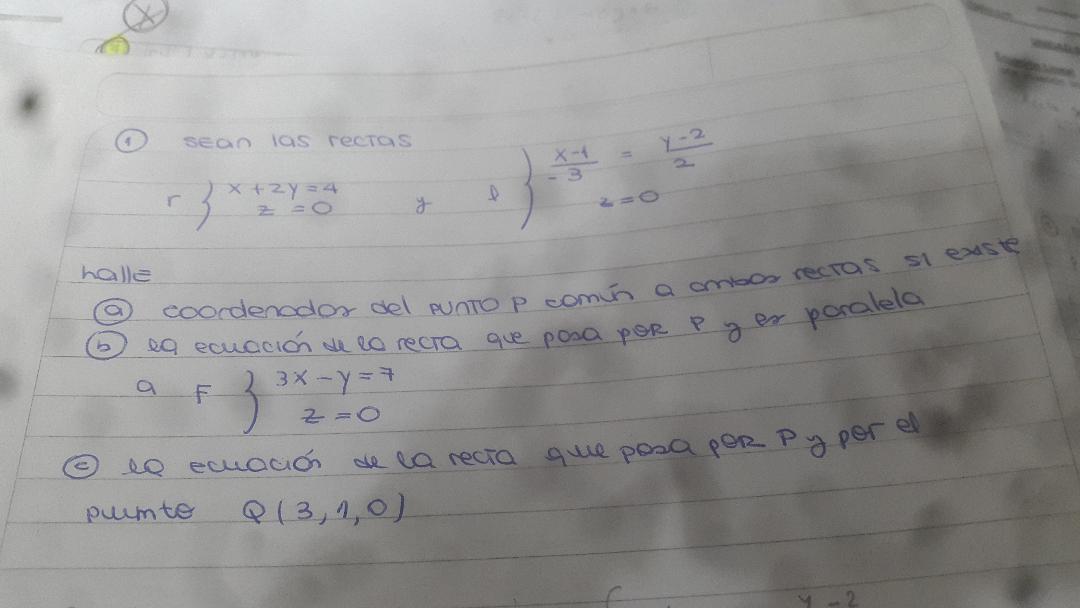 ① sean las rectas
r } x + 2y = 4 z = 0 y l } x-1/-3 = y-2/2 z = 0
halle
ⓐ coordenadas del punto P común a ambas rectas si existe
ⓑ la ecuación de la recta que pasa por P y es paralela
a F } 3x - y = 7 z = 0
ⓒ la ecuación de la recta que pasa por P y por el
punto Q(3,1,0)
y-2